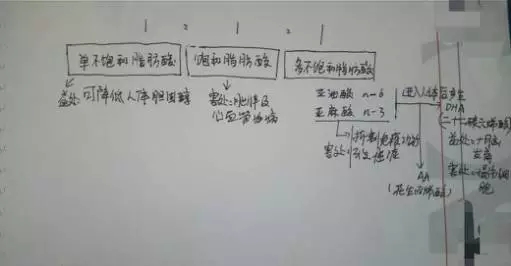 1 : 1 : 1
单不饱和脂肪酸
饱和脂肪酸
多不饱和脂肪酸
益处 可降低人体胆固醇
害处：肥胖及
心血管疾病
亚油酸 n-6
亚麻酸 n-3
抑制免疫功能
害处：
进入人体后产生
DHA
(二十二碳六烯酸)
益处：
害处：损伤细
胞
AA
(花生四烯酸)